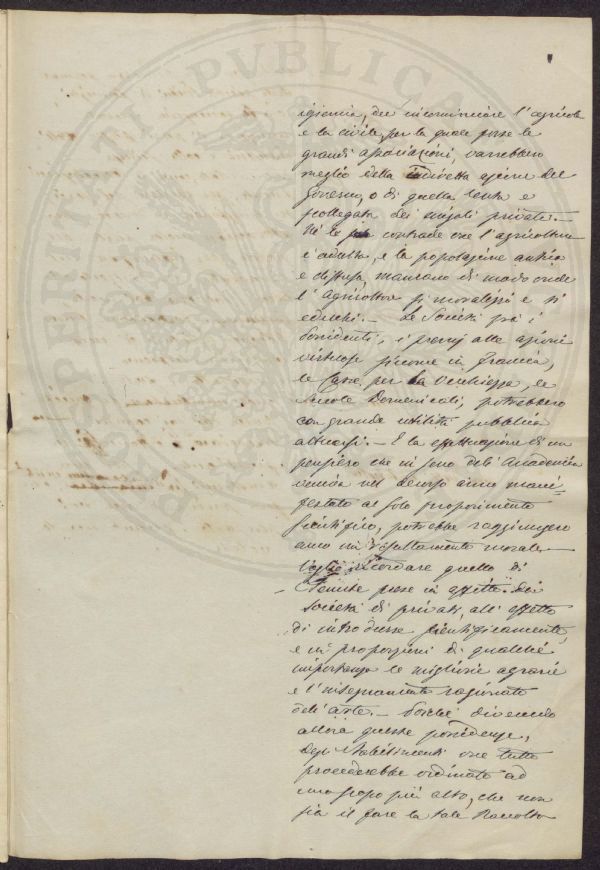 igienia, dee incominciare l'agricola
e la civile, per la quale forse le
grandi associazioni, varrebbero
meglio della indiretta azione del
Governo, o di quella lenta e
scollegata dei singoli privati. —
Nè le contrade ove l'agricoltura
è adulta, e la popolazione antica
e diffusa, mancano di modo onde
l'Agricoltore si moralizzi e si
educhi. — Le Società fra i
Possidenti, i premj alle azioni
virtuose siccome in Francia,
le Casse per la Vecchiezza, le
Scuole Domenicali, potrebbero
con grande utilità pubblica
attuarsi. — E la effettuazione di un
pensiero che in seno dell'Accademia
veniva nel decorso anno mani-
festato al solo proponimento
scientifico, potrebbe raggiungere
anco un risultamento morale. —
Voglio ricordare quello di
Tenute prese in affitto da
Società di privati, all'effetto
di introdurre scientificamente,
e in proporzioni di qualche
importanza le migliorie agrarie
e l'insegnamento ragionato
dell'arte. — Poichè divenendo
allora queste possidenze,
degli Stabilimenti ove tutto
procederebbe ordinato ad
uno scopo più alto, che non
sia il fare la tale Raccolta
PVBLICA